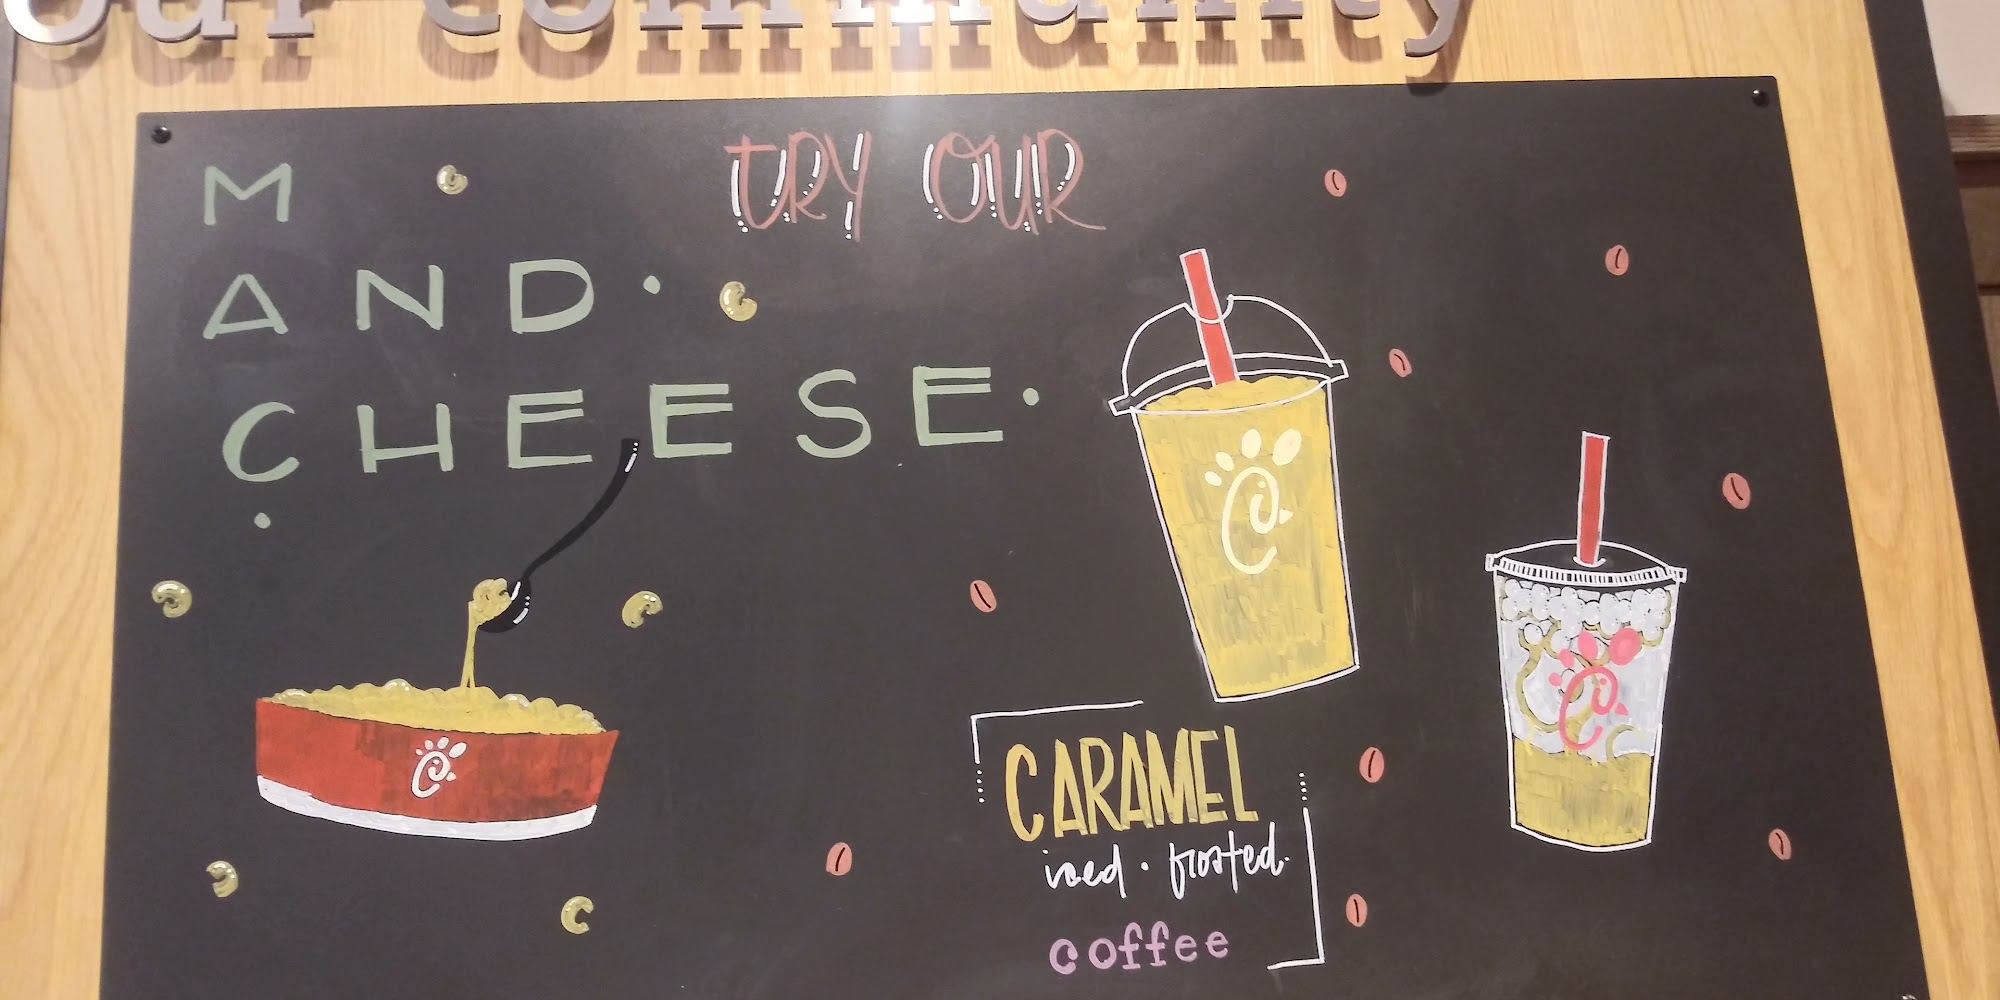 our community
TRY OUR
M
AND.
CHEESE.
CARAMEL
iced · frosted.
coffee